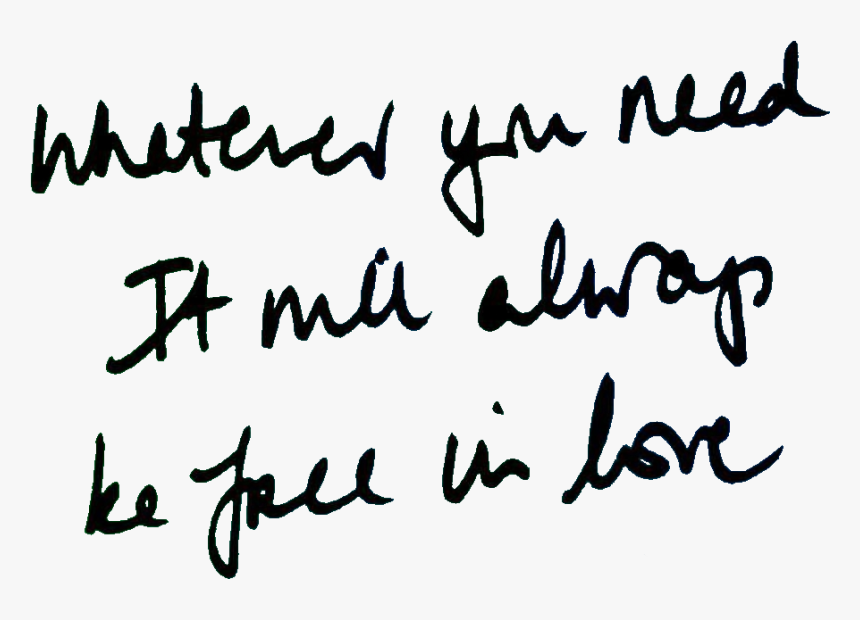 Whatever you need
It will always
be free in love